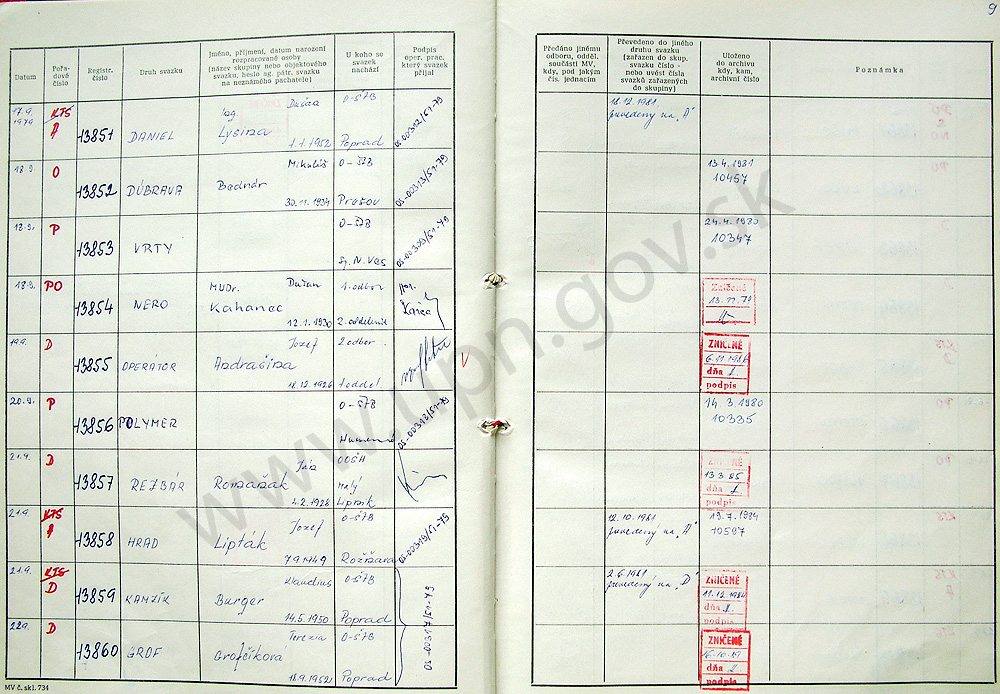 9
Datum
Pořa-
dové
číslo
Registr.
číslo
Druh svazku
Jméno, příjmení, datum narození
rozpracované osoby
(název skupiny nebo objektového
svazku, heslo ag. pátr. svazku
na neznámého pachatele)
U koho se
svazek
nachází
Podpis
oper. prac.
který svazek
přijal
Předáno jinému
odboru, odděl.
součásti MV,
kdy, pod jakým
čís. jednacím
Převedeno do jiného
druhu svazku
(zařazen do skup.
svazku číslo -
nebo uvést čísla
svazků zařazených
do skupiny)
Uloženo
do archivu
kdy, kam,
archivní číslo
Poznámka
17.9.
1979
KTS
A
13851
DANIEL
Ing. Dušan
Lysina
1.1.1952
O-ŠTB
Poprad
OS-00312/51-79
18.12.1981
prevedený na "A"
18.9.
O
13852
DÚBRAVA
Mikuláš
Bednár
30.11.1934
O-ŠTB
Prešov
OS-00313/51-79
13.4.1981
10457
18.9.
P
13853
VRTY
O-ŠTB
Sp. N. Ves
24.4.1980
10347
18.9.
PO
13854
NERO
MUDr. Dušan
Kahanec
12.1.1930
1. odbor
2. oddelenie
Zničené
13.11.79
19.9.
D
13855
OPERÁTOR
Jozef
Andraščina
18.12.1926
2. odbor
1. oddel.
ZNIČENÉ
6.11.1986
dňa
podpis
20.9.
P
13856
POLYMER
O-ŠTB
Humenné
OS-00318/51-79
14.3.1980
10335
21.9.
D
13857
REZBÁR
Ján
Romaňak
4.2.1926
OOŠH
Malý
Lipník
ZNIČENÉ
13.3.85
dňa
podpis
21.9.
KTS
A
13858
HRAD
Jozef
Lipták
7.9.1949
O-ŠTB
Rožňava
OS-00319/51-79
12.10.1981
prevedený na "A"
19.7.1984
10597
21.9.
KTS
D
13859
KAMZÍK
Klaudius
Burger
14.5.1950
O-ŠTB
Poprad
2.6.1981
prevedený na "D"
ZNIČENÉ
11.12.1984
dňa
podpis
22.9.
D
13860
GROF
Terezia
Grofčíková
18.9.1952
O-ŠTB
Poprad
ZNIČENÉ
dňa
podpis
MV č. skl. 734
www.upn.gov.sk